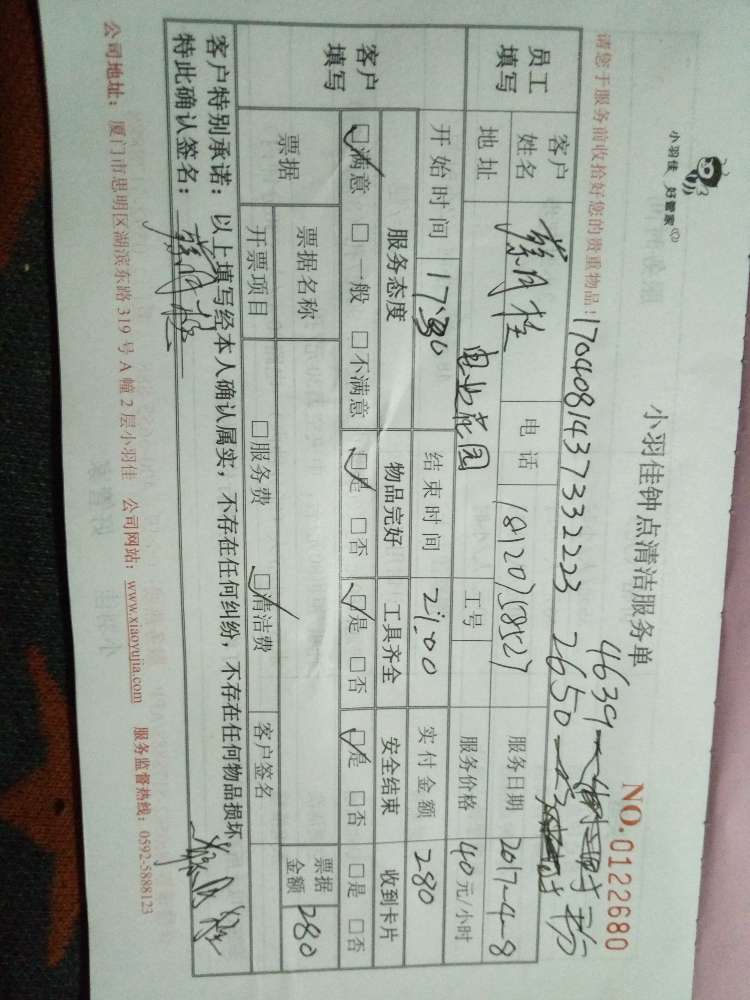 小羽佳 好管家
小羽佳钟点清洁服务单
NO.0122680
请您于服务前收拾好您的贵重物品!
1704081437332223
4639
2650
员工填写
客户姓名 蔡月桂 电话 18120758527 服务日期 2017-4-8
地址 电业花园 工号 服务价格 40元/小时
开始时间 17:30 结束时间 21:00 实付金额 280
客户填写
服务态度 物品完好 工具齐全 安全结束 收到卡片
☑满意 □一般 □不满意 ☑是 □否 ☑是 □否 ☑是 □否 □是 □否
票据 票据名称 票据金额 280
开票项目 □服务费 ☑清洁费 客户签名
客户特别承诺:以上填写经本人确认属实,不存在任何纠纷,不存在任何物品损坏
特此确认签名: 蔡月桂 蔡月桂
公司地址:厦门市思明区湖滨东路319号A幢2层小羽佳 公司网站:www.xiaoyujia.com 服务监督热线:0592-5888123